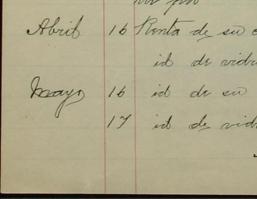 Abril 16 Renta de su c
id de vidr
Mayo 16 id de su
17 id de vid